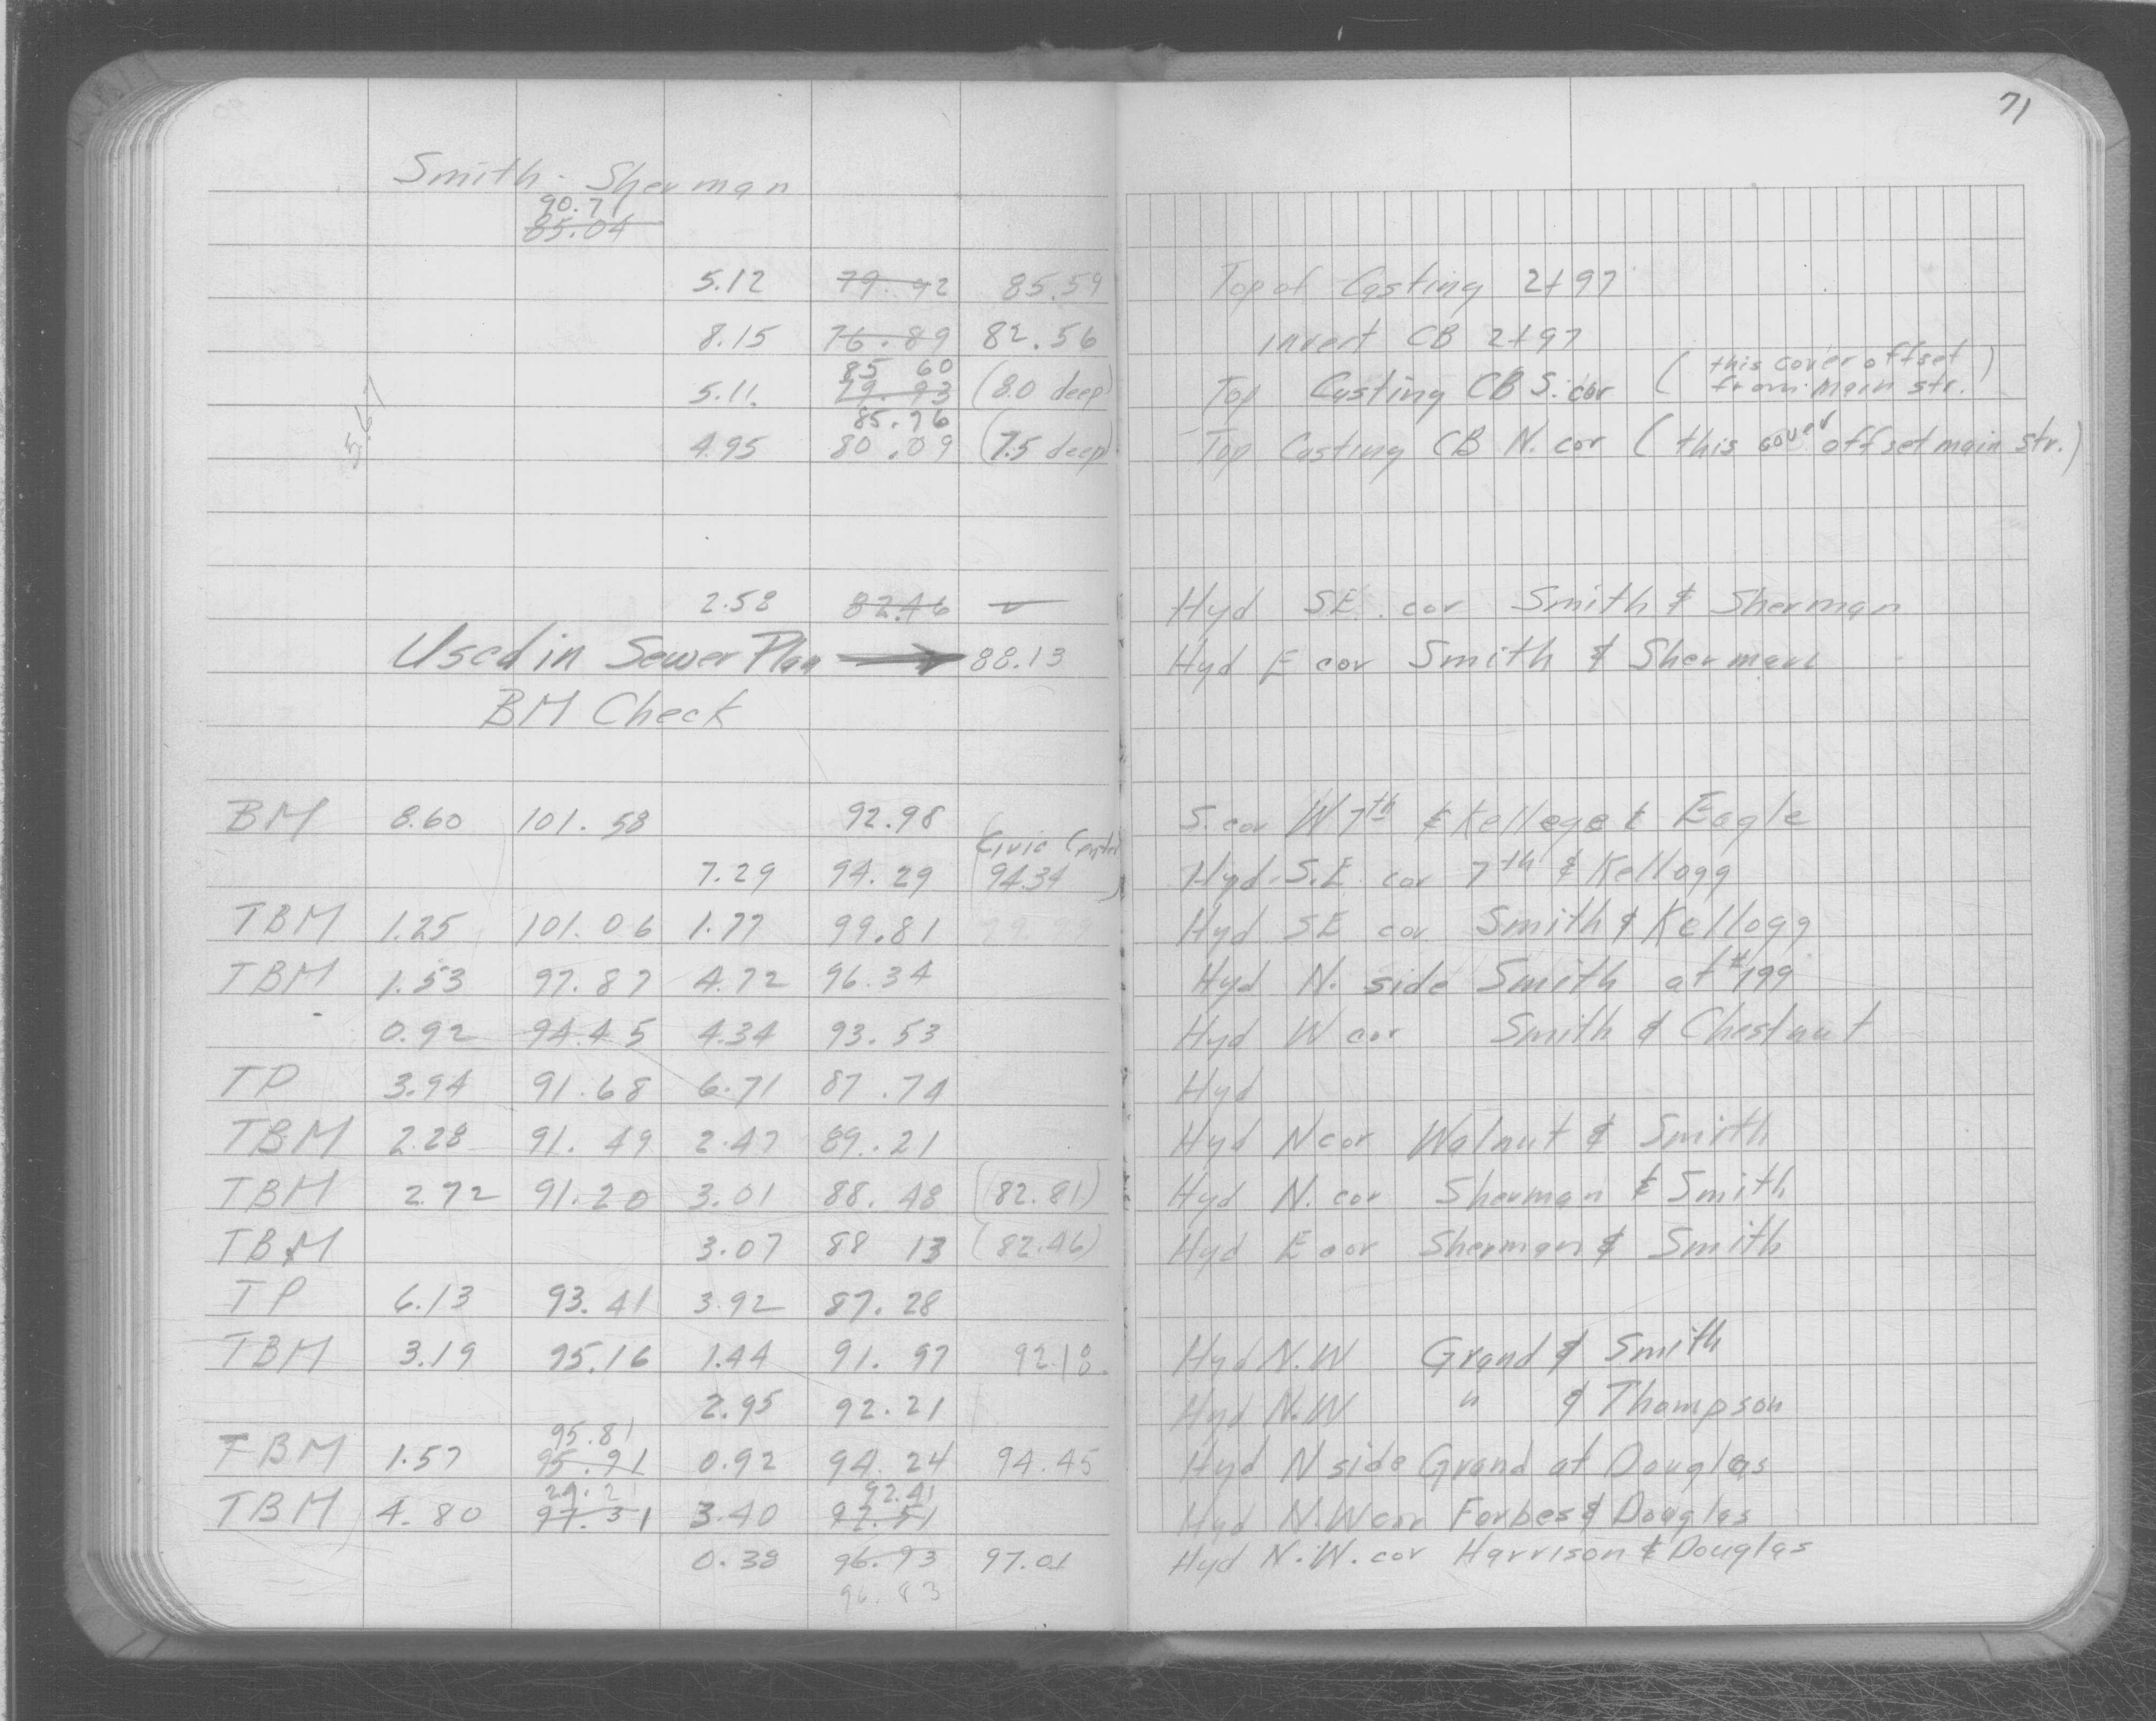 71
Smith - Sherman
90.71
85.04
5.12 79.92 85.59 Top of Casting 2+97
8.15 76.89 82.56 invert CB 2+97
85 60
5.11. 79.93 (8.0 deep) Top Casting CB S. cor ( this cover offset from main str. )
85.76
5.67
4.95 80.09 (7.5 deep) Top Casting CB N. cor ( this cover offset main str. )
2.58 82.46 Hyd SE. cor Smith & Sherman
Used in Sewer Plan → 88.13 Hyd E cor Smith & Sherman
BM Check
BM 8.60 101.58 92.98 S. cor W 7th & Kellege & Eagle
7.29 94.29 (Civic Center 94.34) Hyd. S.E. cor 7th & Kellogg
TBM 1.25 101.06 1.77 99.81 Hyd SE cor Smith & Kellogg
TBM 1.53 97.87 4.72 96.34 Hyd N. side Smith at #199
0.92 94.45 4.34 93.53 Hyd W cor Smith & Chestnut
TP 3.94 91.68 6.71 87.74 Hyd
TBM 2.28 91.49 2.47 89.21 Hyd N cor Walnut & Smith
TBM 2.72 91.20 3.01 88.48 (82.81) Hyd N. cor Sherman & Smith
TBM 3.07 88 13 (82.46) Hyd E cor Sherman & Smith
TP 6.13 93.41 3.92 87.28
TBM 3.19 95.16 1.44 91.97 92.18 Hyd N.W Grand & Smith
2.95 92.21 Hyd N.W " & Thompson
95.81
TBM 1.57 95.91 0.92 94.24 94.45 Hyd N side Grand at Douglas
92.41
TBM 4.80 97.31 3.40 92.51 Hyd N.W cor Forbes & Douglas
0.38 96.93 97.01 Hyd N.W. cor Harrison & Douglas
96.83